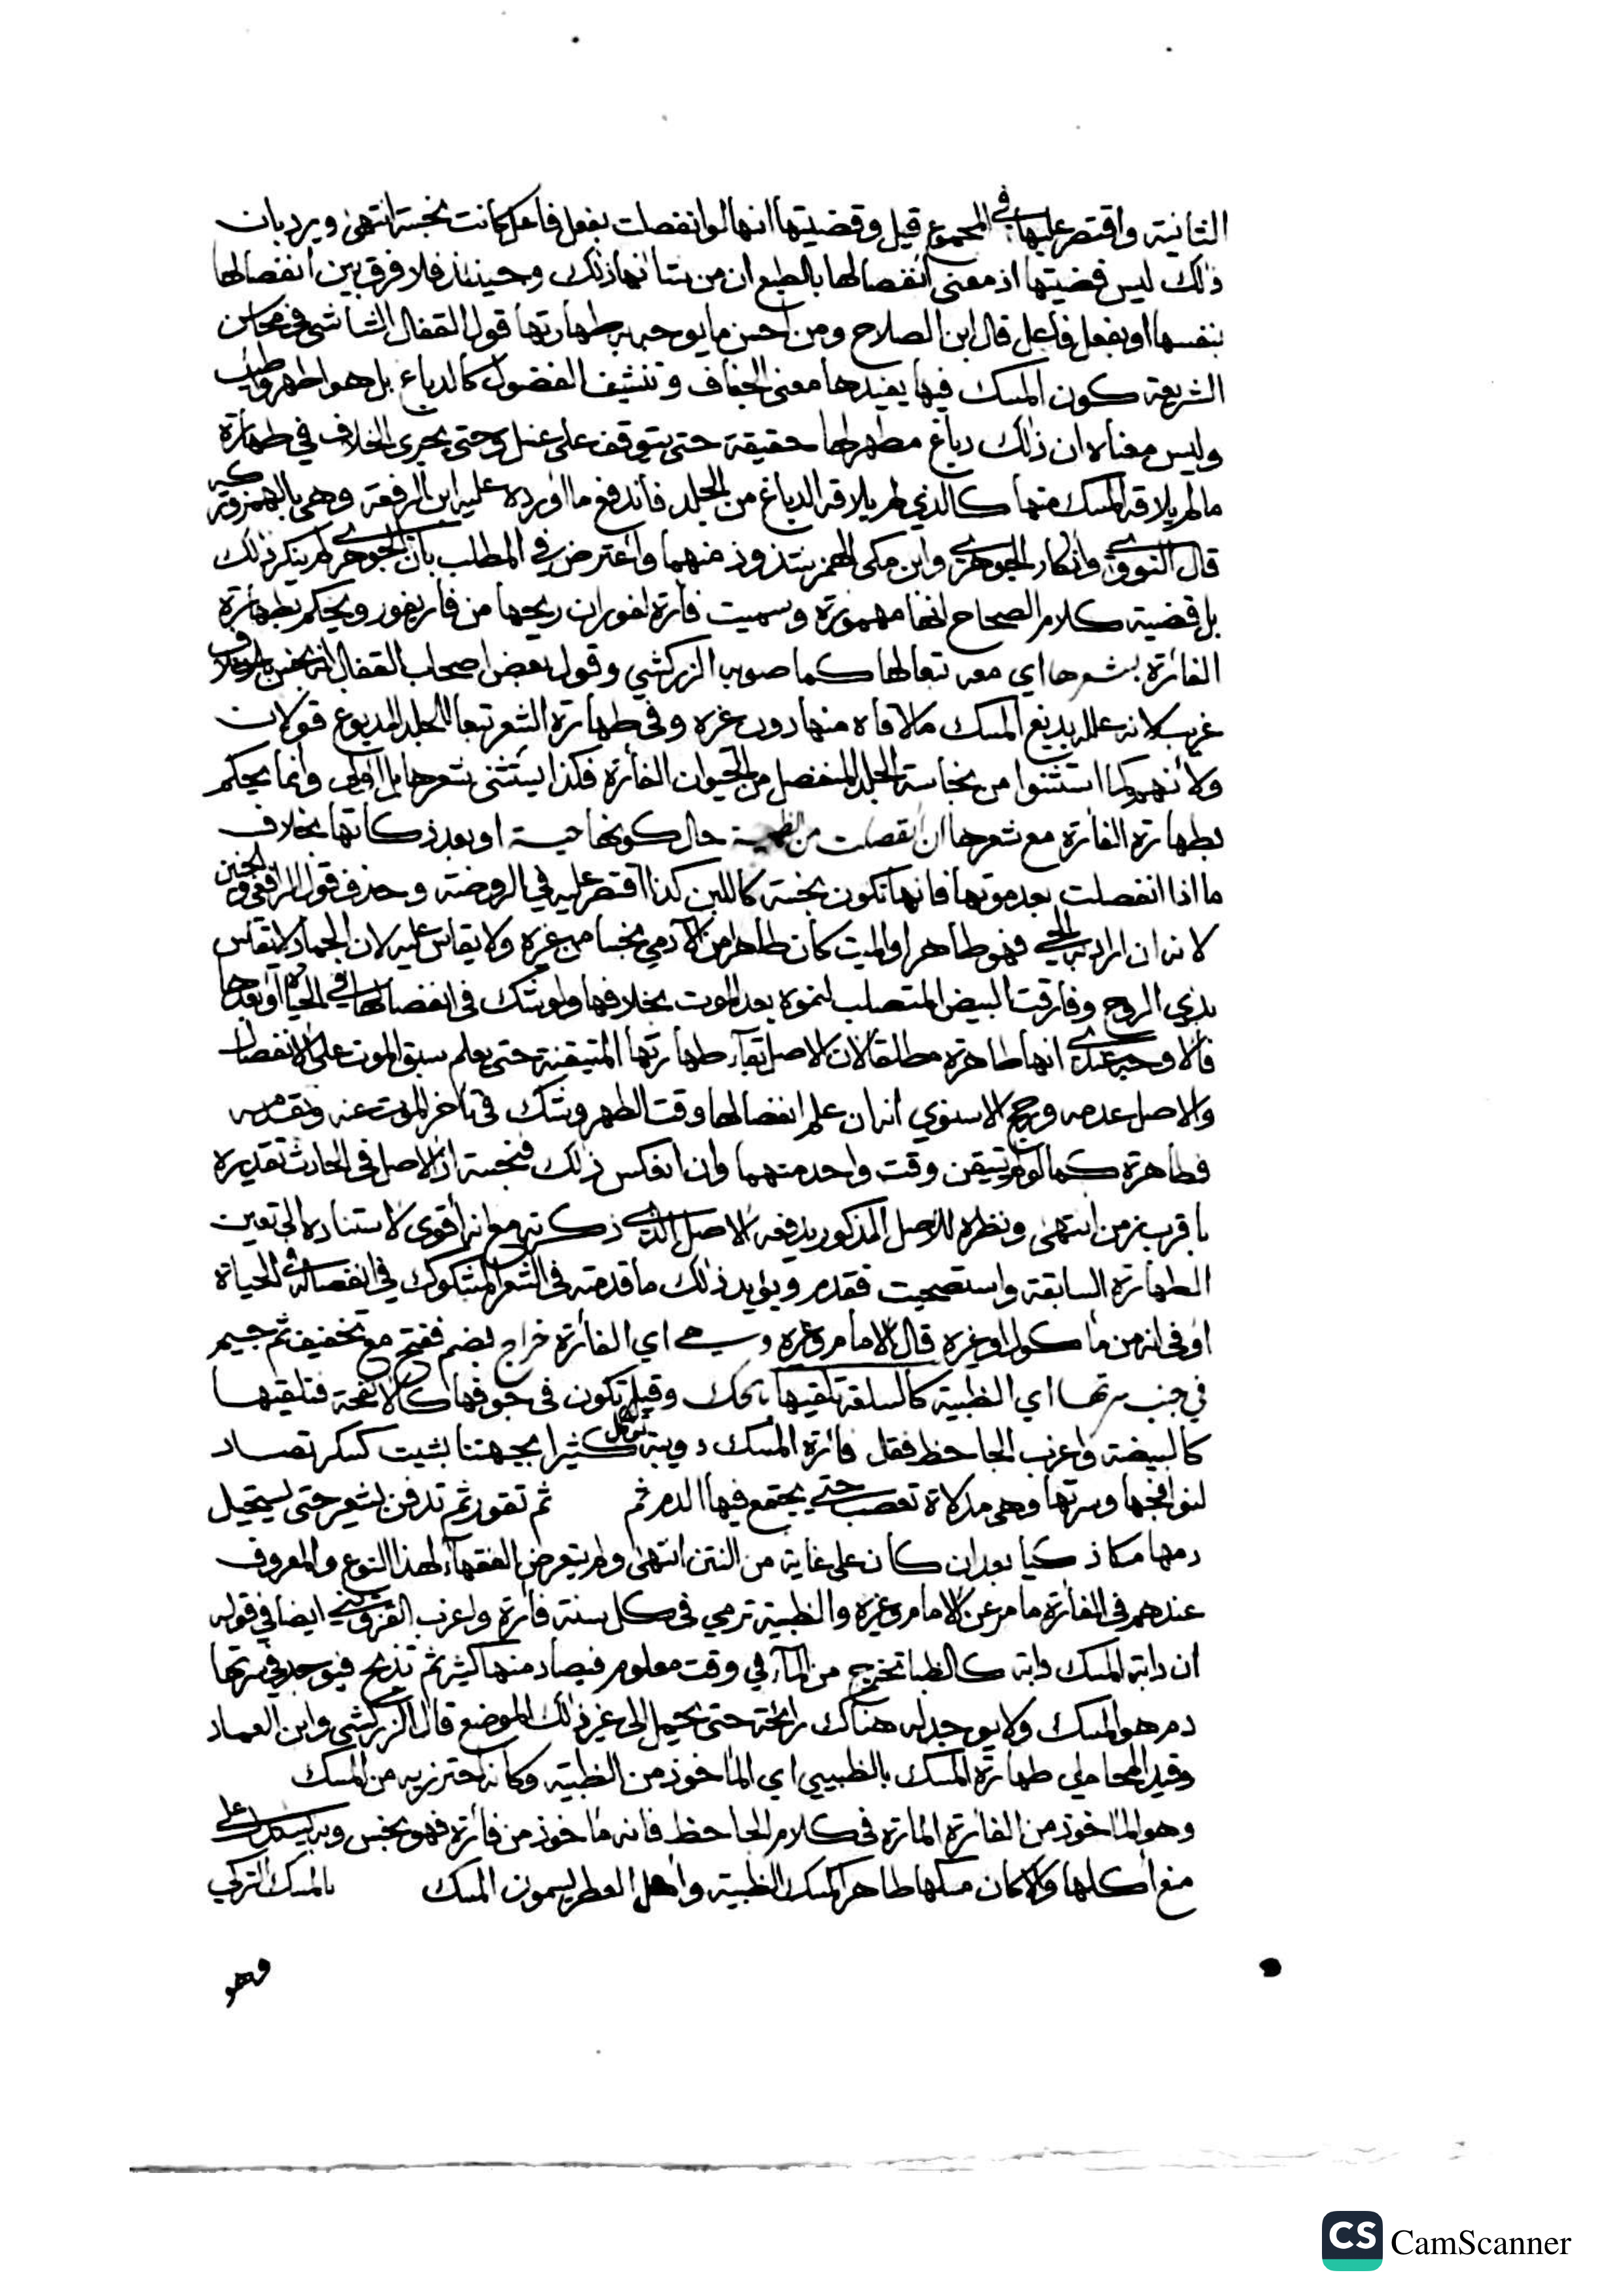 الثانية واقتصر عليها في المجموع قيل وقضيتها انها لو انفصلت بفعل فاعل كانت نجسة انتهى ويرد بان
ذلك ليس قضيتها اذ معنى انفصالها بالطبع ان من شانها ذلك وحينئذ فلا فرق بين انفصالها
بنفسها او بفعل فاعل قال ابن الصلاح ومن احسن ما يوجه به طهارتها قول القفال الشاشي في محاسن
الشريعة كون المسك فيها يفيدها معنى الجفاف وتنشيف الفضول كالدباغ بل هو اطهر واطيب
وليس معناه ان ذلك دباغ مطهر لها حقيقة حتى يتوقف على غسل وحتى يجري الخلاف في طهارة
ما لم يلاقه المسك منها كالذي لم يلاقه الدباغ من الجلد فاندفع ما اورده عليه ابن الرفعة وهي بالهمز وتركه
قال النووي وانكار الجوهري وابن مكي الهمز شذوذ منهما واعترض في المطلب بان الجوهري لم ينكر ذلك
بل قضية كلام الصحاح انها مهموزة وسميت فأرة لفوران ريحها من فار يفور ويحكم بطهارة
الفأرة بشعرها اي معه تبعا لها كما صوبه الزركشي وقول بعض اصحاب القفال انه نجس بلا خلاف
غريب لانه علله بدبغ المسك ما لاقاه منها دون غيره وفي طهارة الشعر تبعا للجلد المدبوغ قولان
ولأنهم كما استثنوا من نجاسة الجلد المنفصل من الحيوان الفأرة فكذا يستثنى شعرها بل اولى وانما يحكم
بطهارة الفأرة مع شعرها ان انفصلت من الظبية حال كونها حية او بعد ذكاتها بخلاف
ما اذا انفصلت بعد موتها فانها تكون نجسة كاللبن كذا اقتصر عليه في الروضة وحذف قول الرافعي والجنين
لانه ان اراد به الحي فهو طاهر او الميت كان طاهرا من الآدمي نجسا من غيره ولا يقاس عليه لان الجماد لا يقاس
بذي الروح وفارقت البيض المتصلب لنموه بعد الموت بخلافها ولو شك في انفصالها في الحياة او بعدها
فالاوجه عندي انها طاهرة مطلقا لان الاصل بقاء طهارتها المتيقنة حتى يعلم سبق الموت على الانفصال
والاصل عدمه ورجح الاسنوي انه ان علم انفصالها وقت الظهر وشك في تأخر الموت عنه وتقدمه
فطاهرة كما لو لم تتيقن وقت واحد منهما وان انعكس ذلك فنجسة اذ الاصل في الحادث تقديره
باقرب زمن انتهى ونظره للاصل المذكور يدفعه الاصل الذي ذكرته مع انه أقوى لاستناده الى تعين
الطهارة السابقة واستصحبت فقدم ويؤيد ذلك ما قدمته في الشعر المشكوك في انفصاله في الحياة
او في انه من مأكول او غيره قال الامام وغيره وهي اي الفأرة خراج بضم ففتح مع تخفيف ثم جيم
في جنب سرتها اي الظبية كالسلعة تلقيها بالحك وقيل تكون في جوفها كالانفحة فتلقيها
كالبيضة واغرب الجاحظ فقل فأرة المسك دويبة تؤكل كثيرا بجهتنا بشيت كسكر تصاد
لنوافجها وسرتها وهي مدلاة تعصب حتى يجتمع فيها الدم ثم ثم تقور ثم تدفن لشعير حتى يستحيل
دمها مسكا ذكيا بعد ان كان على غاية من النتن انتهى ولم يتعرض الفقهاء لهذا النوع والمعروف
عندهم في الفأرة ما مر عن الامام وغيره والظبية ترمي في كل سنة فأرة واغرب القزويني ايضا في قوله
ان دابة المسك دابة كالظبا تخرج من الماء في وقت معلوم فيصاد منها كثير ثم تذبح فيوجد في سرتها
دم هو المسك ولا يوجد له هناك رائحة حتى يحمل الى غير ذلك الموضع قال الزركشي وابن العماد
وقيد المحاملي طهارة المسك بالظبيي اي المأخوذ من الظبية وكأنه احترز به من المسك
وهو المأخوذ من الفأرة المارة في كلام الجاحظ فانه مأخوذ من فأرة فهو نجس وبه يشكل على
منع أكلها والا كان مسكها طاهرا كمسك الظبية واهل العطر يسمون المسك بالمسك التركي
وهو
CS CamScanner